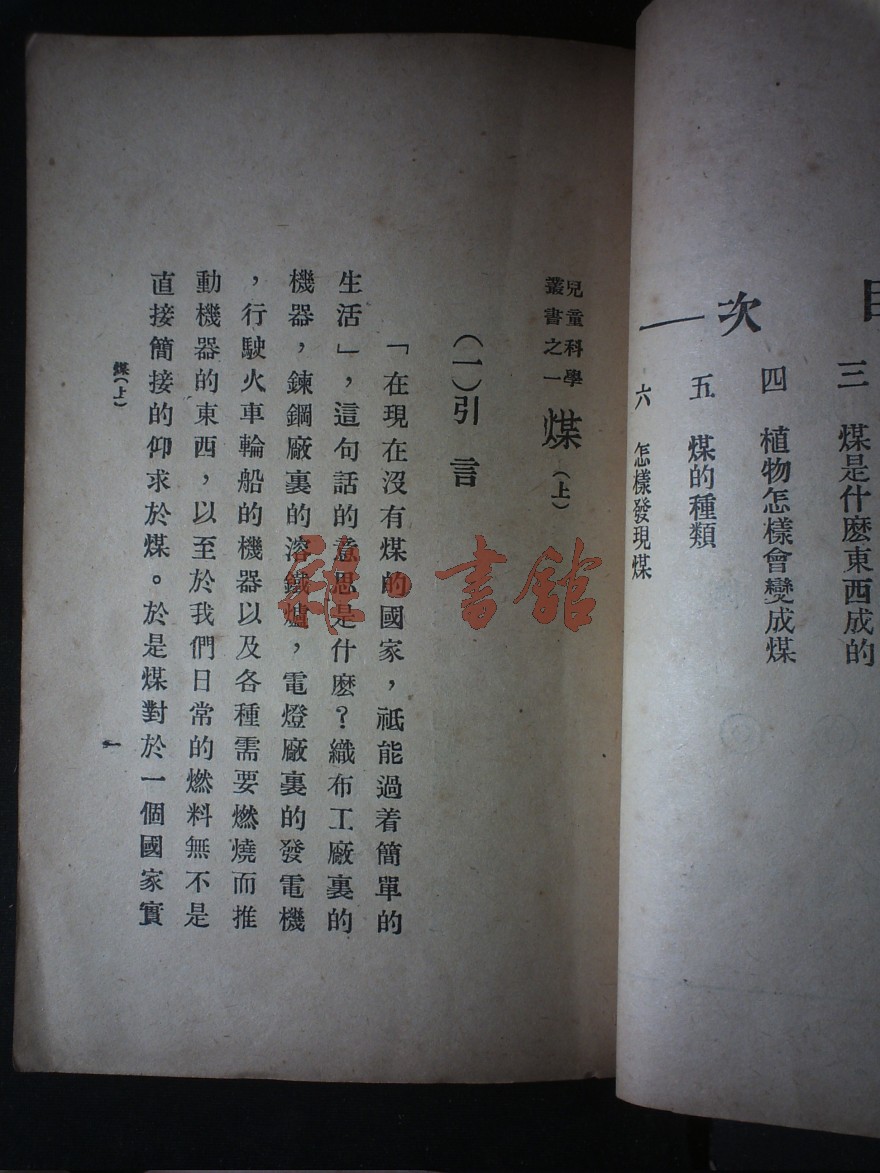 目次一
三　煤是什麽東西成的
四　植物怎樣會變成煤
五　煤的種類
六　怎樣發現煤
兒童科學
叢書之一
煤（上）
（一）引言
「在現在沒有煤的國家，祇能過着簡單的
生活」，這句話的意思是什麽？織布工廠裏的
機器，鍊鋼廠裏的溶鐵爐，電燈廠裏的發電機
，行駛火車輪船的機器以及各種需要燃燒而推
動機器的東西，以至於我們日常的燃料無不是
直接簡接的仰求於煤。於是煤對於一個國家實
煤（上）
一
雜·書館